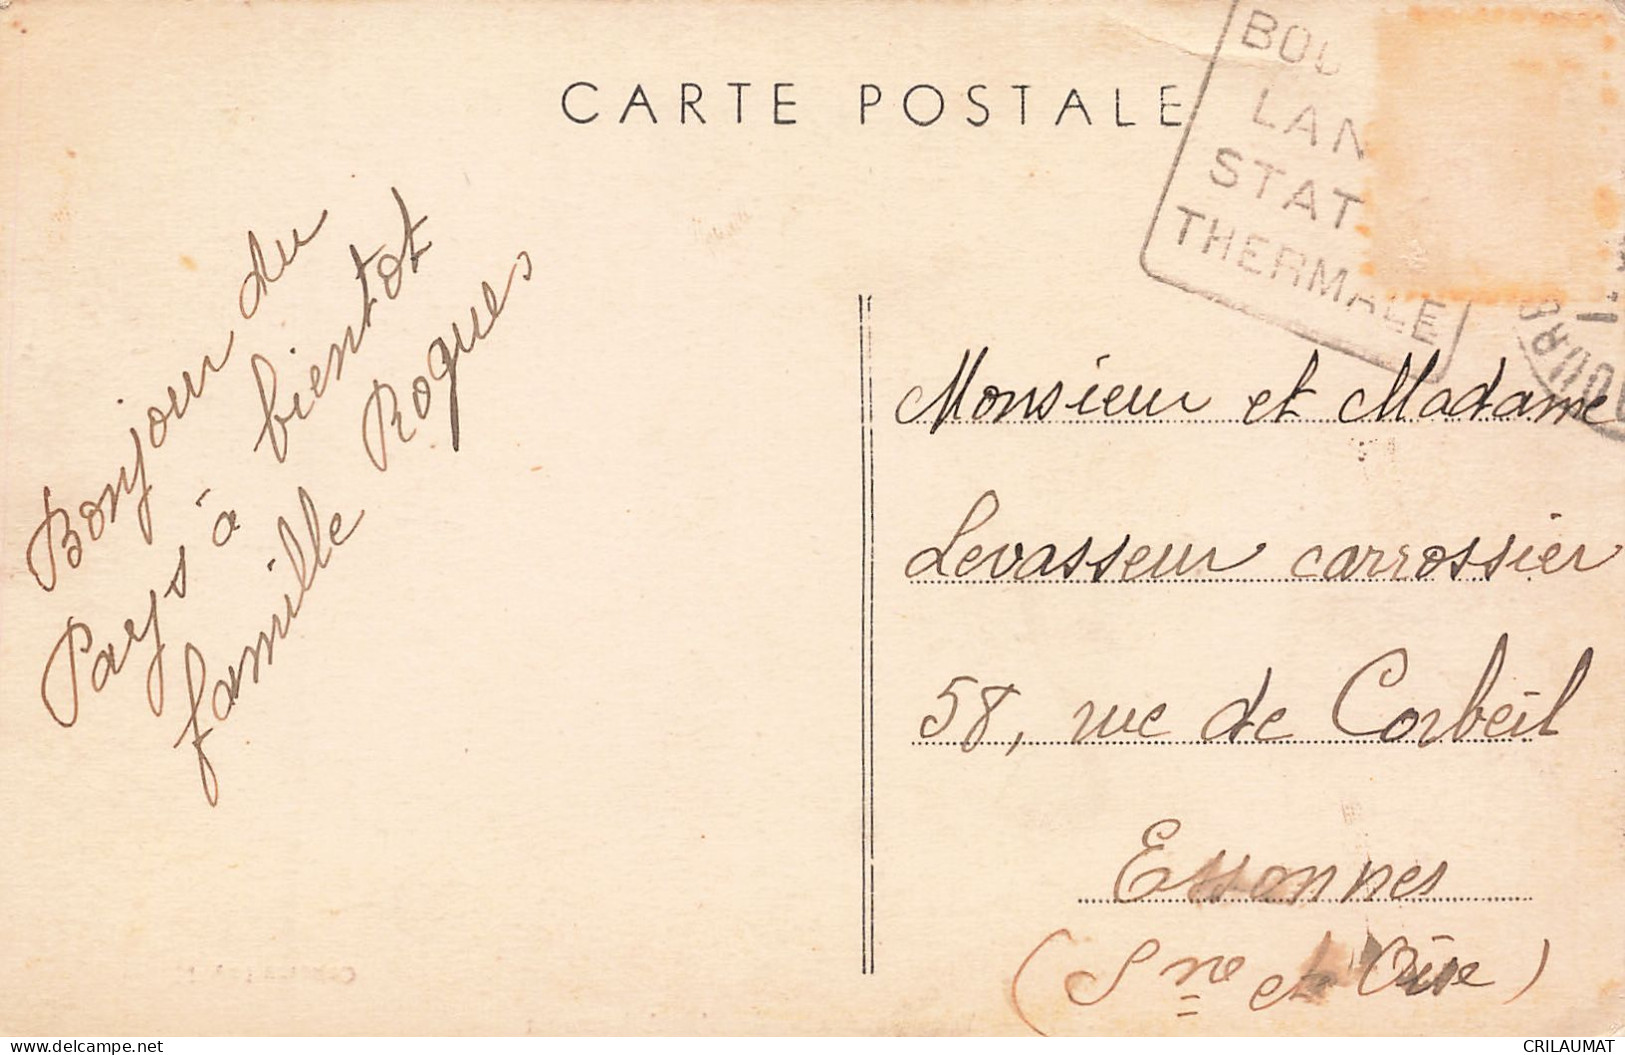 CARTE POSTALE
BOU
LAN
STAT
THERMALE
BOUR
Bonjour du
Pays à bientot
famille Roques
Monsieur et Madame
Levasseur carrossier
58, rue de Corbeil
Essonnes
(Sne et Oise)
delcampe.net
CRILAUMAT